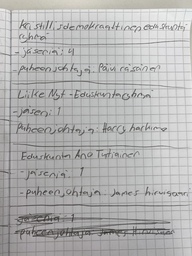 Kristillisdemokraattinen eduskunta
ryhmä
- jäseniä: 4
- puheenjohtaja. Päivi räsänen
Liike Nyt - Eduskuntaryhmä
- jäseni: 1
Puheenjohtaja: Harry harkimo
Eduskunta Ano Turtiainen
- jäseniä: 1
- puheenjohtaja James hirvisaari
jäseniä: 1
- puheenjohtaja James Hirvisaari